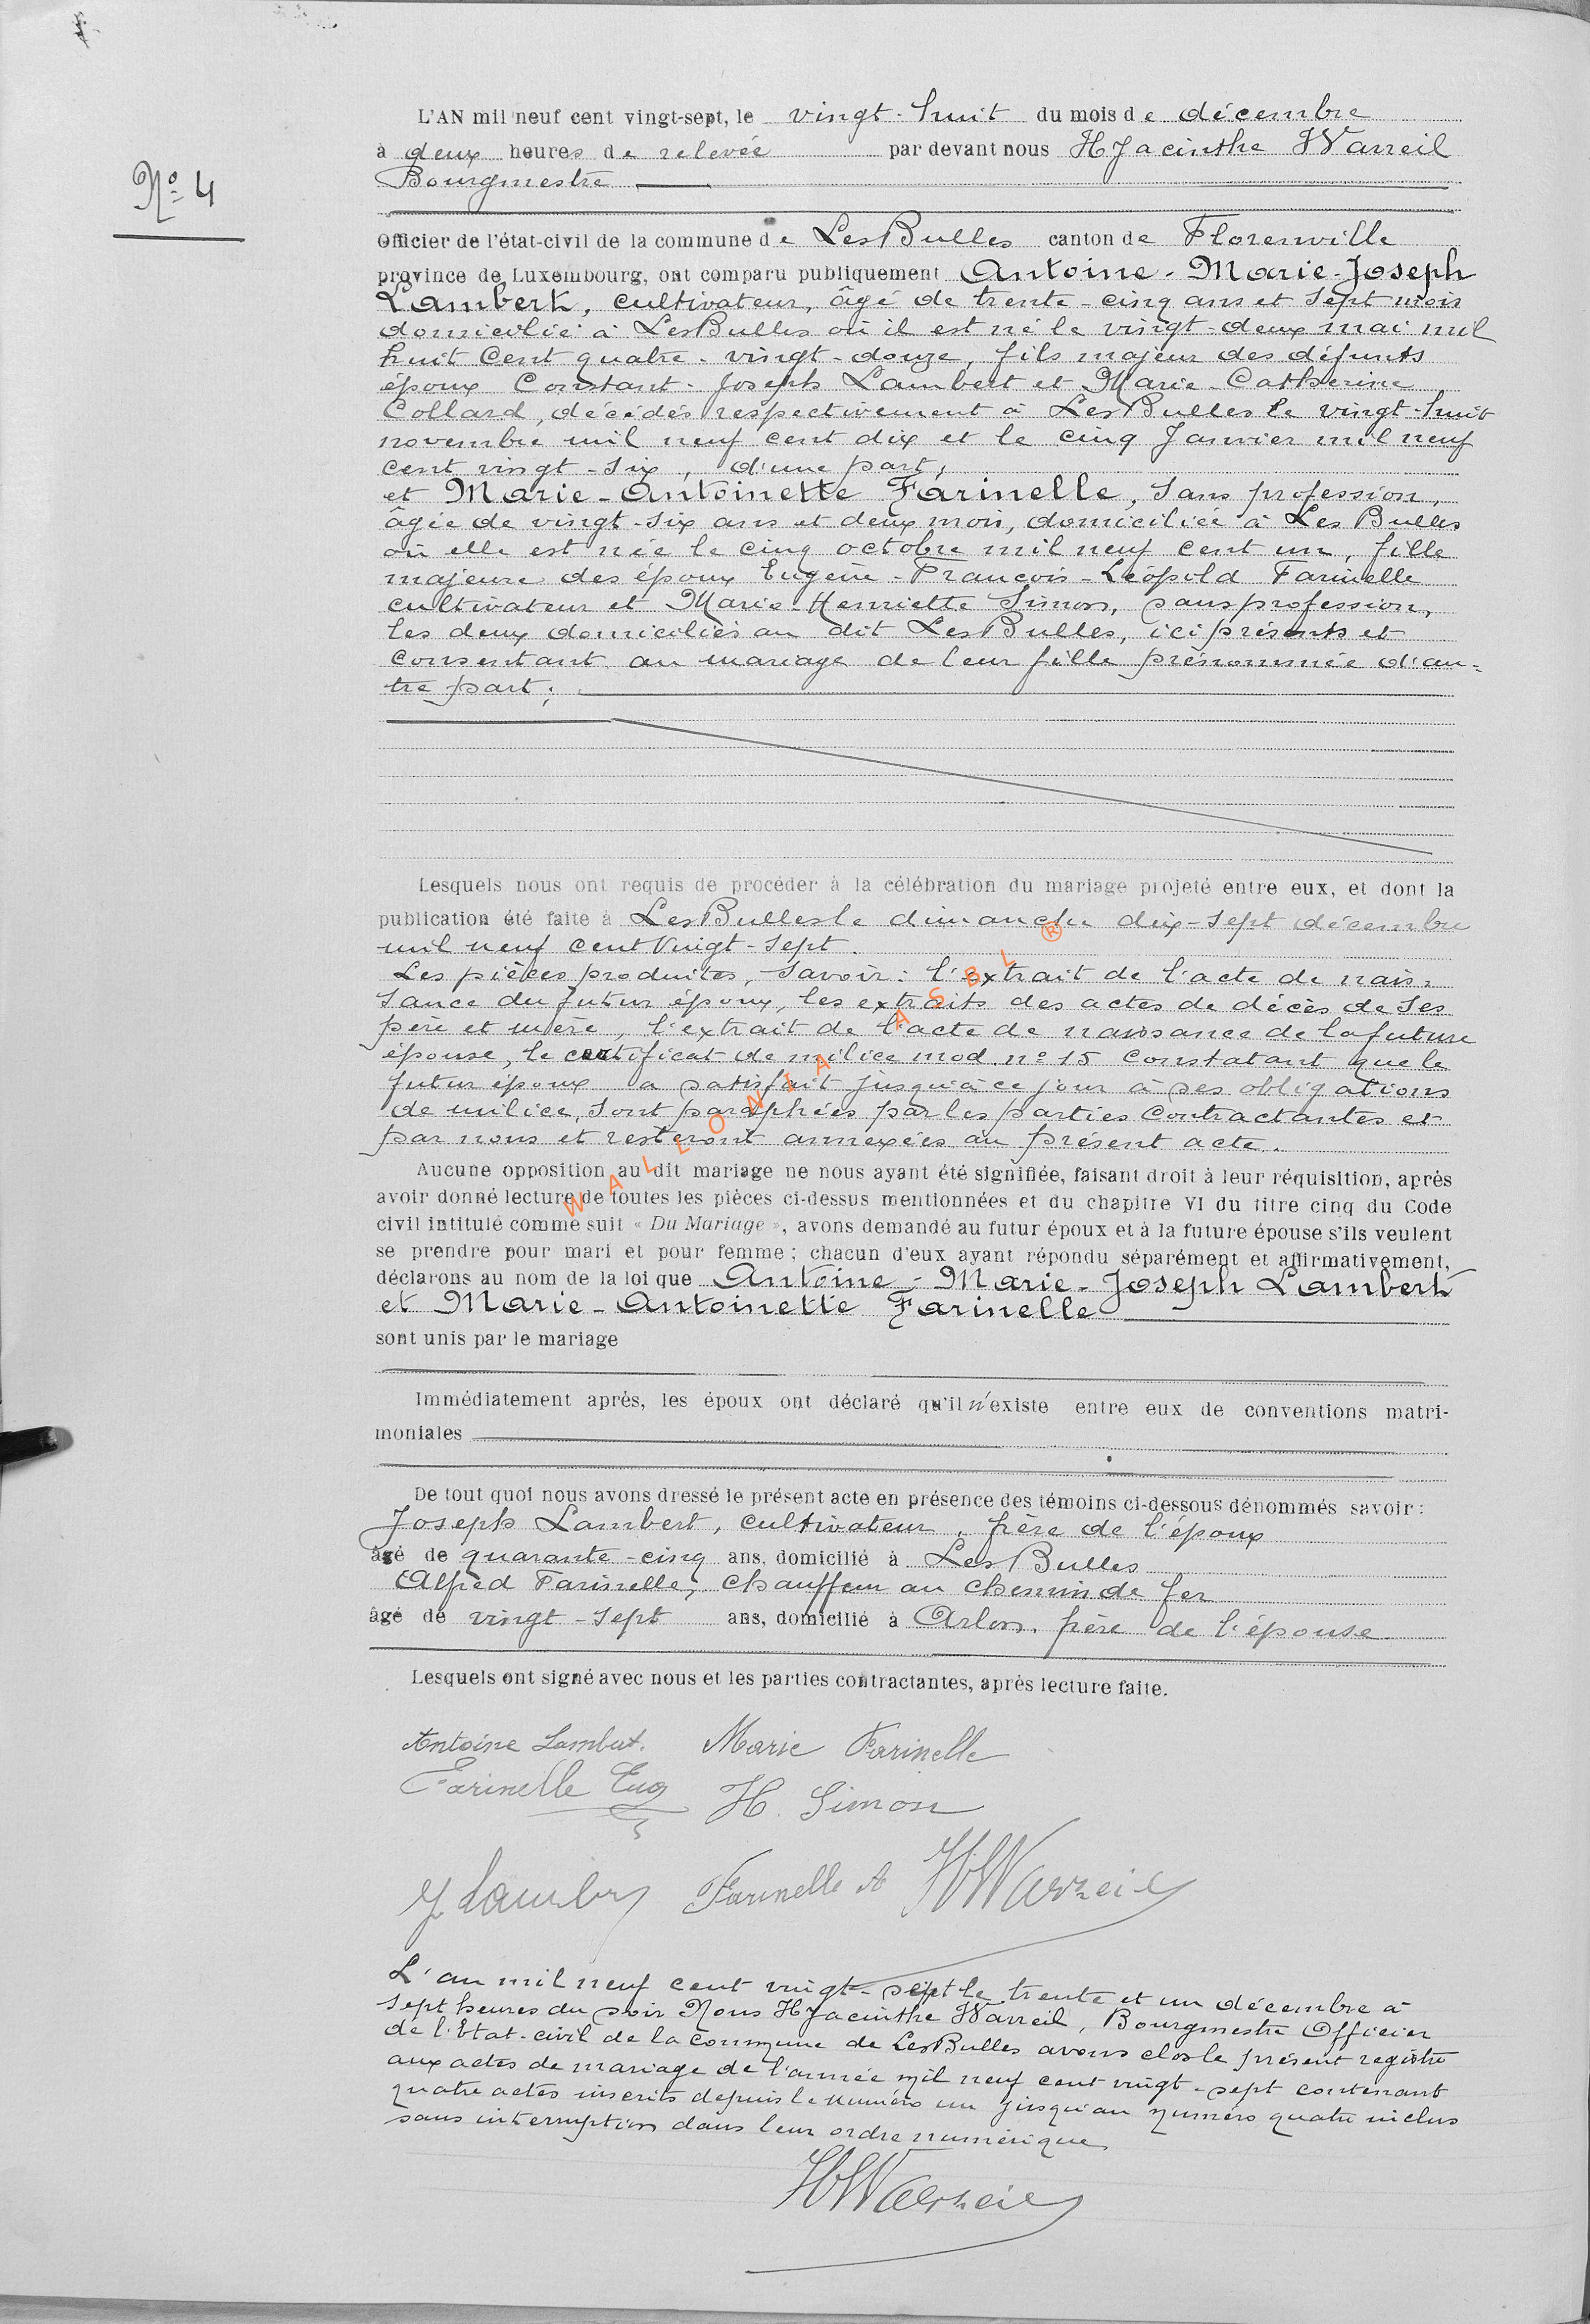 L'AN mil neuf cent vingt-sept, le vingt-huit du mois de décembre
à deux heures de relevée par devant nous Hyacinthe Warreil
Bourgmestre
Nº 4
Officier de l'état-civil de la commune de Les Bulles canton de Florenville
province de Luxembourg, ont comparu publiquement Antoine-Marie-Joseph
Lambert, cultivateur, âgé de trente-cinq ans et sept mois
domicilié à Les Bulles où il est né le vingt-deux mai mil
huit cent quatre-vingt-douze, fils majeur des défunts
époux Constant-Joseph Lambert et Marie-Catherine
Collard, décédés respectivement à Les Bulles le vingt-huit
novembre mil neuf cent dix et le cinq Janvier mil neuf
cent vingt-six, d'une part,
et Marie-Antoinette Farinelle, sans profession,
âgée de vingt-six ans et deux mois, domiciliée à Les Bulles
où elle est née le cinq octobre mil neuf cent un, fille
majeure des époux Eugène-François-Léopold Farinelle
cultivateur et Marie-Henriette Simon, sans profession,
les deux domiciliés au dit Les Bulles, ici présents et
consentant au mariage de leur fille prénommée d'au=
tre part;
Lesquels nous ont requis de procéder à la célébration du mariage projeté entre eux, et dont la
publication été faite à Les Bulles le dimanche dix-sept décembre
mil neuf cent vingt-sept.
Les pièces produites, savoir: l'extrait de l'acte de nais=
sance du futur époux, les extraits des actes de décès de ses
père et mère, l'extrait de l'acte de naissance de la future
épouse, le certificat de milice mod. nº 15 constatant que le
futur époux a satisfait jusqu'à ce jour à ses obligations
de milice, sont paraphées par les parties contractantes et
par nous et resteront annexées au présent acte.
WALLONIA ASBL ®
Aucune opposition au dit mariage ne nous ayant été signifiée, faisant droit à leur réquisition, après
avoir donné lecture de toutes les pièces ci-dessus mentionnées et du chapitre VI du titre cinq du Code
civil intitulé comme suit « Du Mariage », avons demandé au futur époux et à la future épouse s'ils veulent
se prendre pour mari et pour femme; chacun d'eux ayant répondu séparément et affirmativement,
déclarons au nom de la loi que Antoine-Marie-Joseph Lambert
et Marie-Antoinette Farinelle
sont unis par le mariage
Immédiatement après, les époux ont déclaré qu'il n'existe entre eux de conventions matri-
moniales
De tout quoi nous avons dressé le présent acte en présence des témoins ci-dessous dénommés savoir:
Joseph Lambert, cultivateur, frère de l'époux
âgé de quarante-cinq ans, domicilié à Les Bulles
Alfred Farinelle, chauffeur au chemin de fer
âgé de vingt-sept ans, domicilié à Arlon, frère de l'épouse
Lesquels ont signé avec nous et les parties contractantes, après lecture faite.
Antoine Lambert. Marie Farinelle
Farinelle Eug H. Simon
J Lambert Farinelle A HWarreil
L'an mil neuf cent vingt-sept le trente et un décembre à
sept heures du soir Nous Hyacinthe Warreil, Bourgmestre Officier
de l'Etat-civil de la commune de Les Bulles avons clos le présent registre
aux actes de mariage de l'année mil neuf cent vingt-sept contenant
quatre actes inscrits depuis le numéro un jusqu'au numéro quatre inclus
sans interruption dans leur ordre numérique
HWarreil